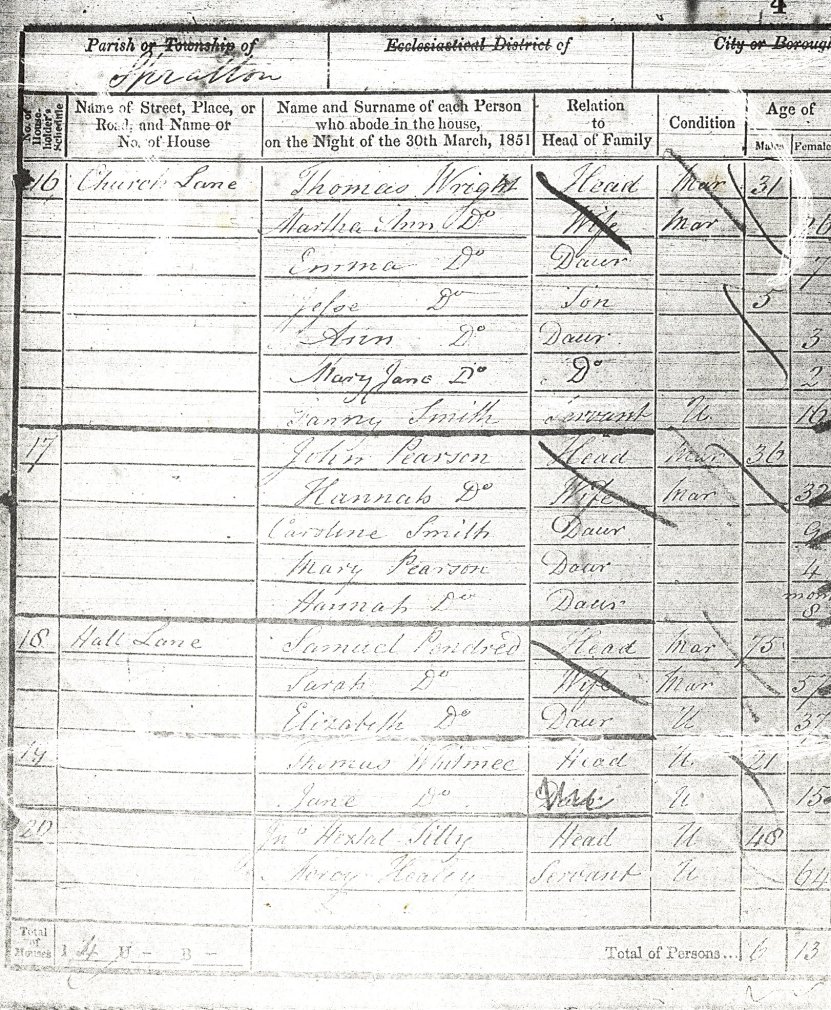 4
Parish or Township of Ecclesiastical District of City or Boroug
Spratton
No. of House-holder's Schedule Name of Street, Place, or Road, and Name or No. of House Name and Surname of each Person who abode in the house, on the Night of the 30th March, 1851 Relation to Head of Family Condition Age of Males Female
16 Church Lane Thomas Wright Head Mar 31
Martha Ann Do Wife Mar 26
Emma Do Daur 7
Jesse Do Son 5
Ann Do Daur 3
Mary Jane Do Do 2
Fanny Smith Servant U
17 John Pearson Head Mar 36
Hannah Do Wife Mar 32
Caroline Smith Daur 9
Mary Pearson Daur 4
Hannah Do Daur mon 8
18 Hall Lane Samuel Pendred Head Mar 75
Sarah Do Wife Mar 57
Elizabeth Do Daur U 37
19 Thomas Whitmee Head U 21
Jane Do U 15
20 Jno Hextal Lilly Head U 48
Mercy Healey Servant U 64
Total of Houses I 4 U - B - Total of Persons... 6 13